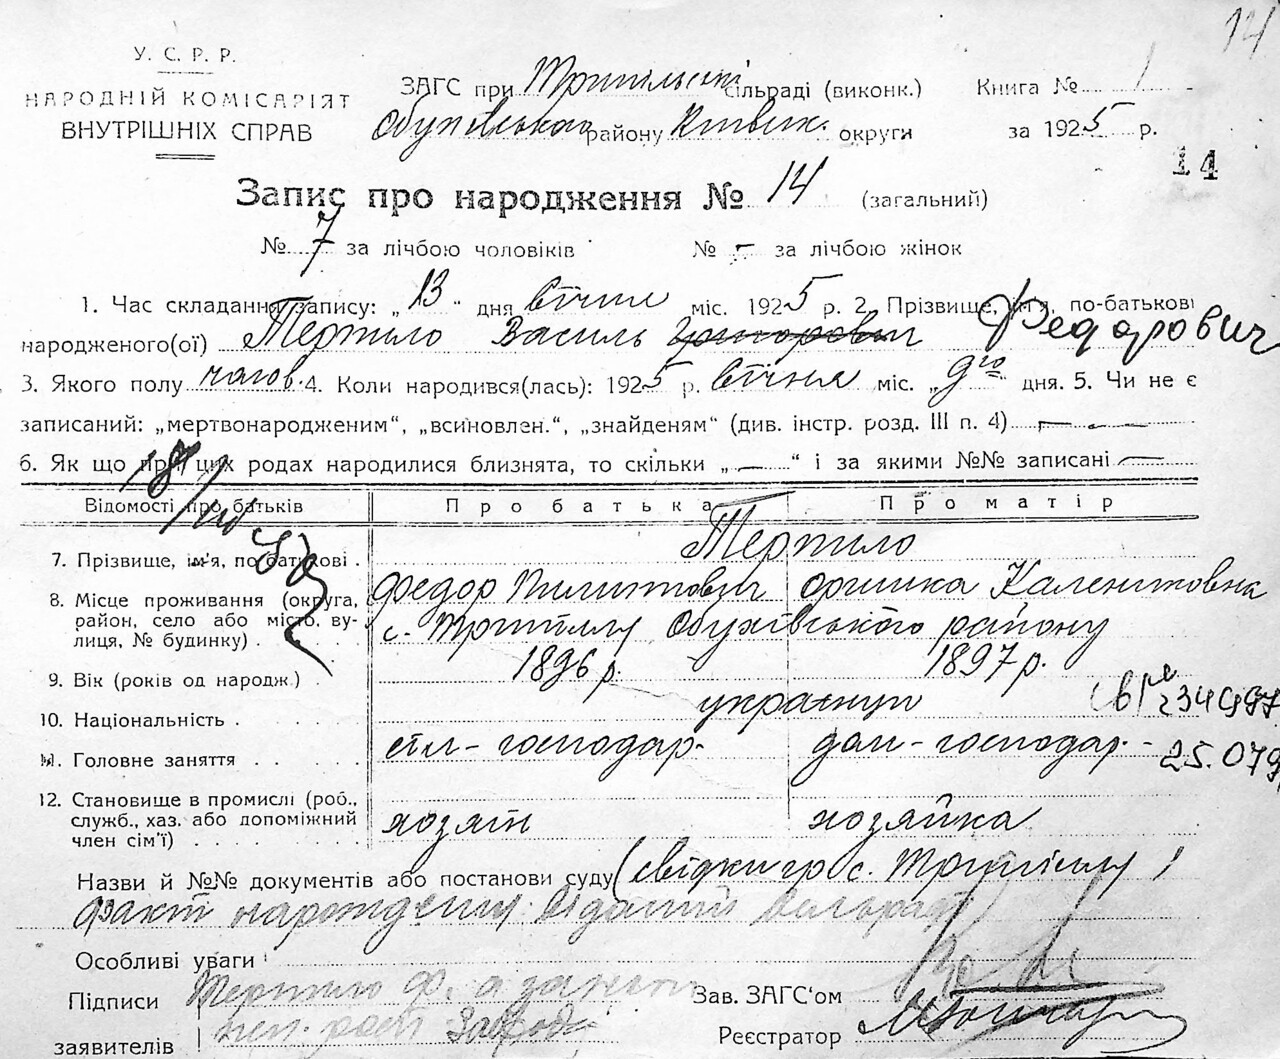 14
У. С. Р. Р.
НАРОДНІЙ КОМІСАРІЯТ
ВНУТРІШНІХ СПРАВ
ЗАГС при Трипільскі сільраді (виконк.) Книга № 1
Обухівського району Київськ. округи за 1925 р.
14
Запис про народження № 14 (загальний)
№ 7 за лічбою чоловіків № – за лічбою жінок
1. Час складання запису: „13" дня Січня міс. 1925 р. 2. Прізвище, ім'я, по-батькові
народженого(ої) Терпило Василь Григорович Федорович
3. Якого полу чолов. 4. Коли народився(лась): 1925 р. Січня міс. „9го" дня. 5. Чи не є
записаний: „мертвонародженим“, „всиновлен.“, „знайденям“ (див. інстр. розд. III п. 4) — —
6. Як що при цих родах народилися близнята, то скільки „—“ і за якими №№ записані —
Відомості про батьків Про батька Про матір
7. Прізвище, ім'я, по батькові . Терпило
Федор Пилипович Оришка Калениковна
8. Місце проживання (округа, район, село або місто, вулиця, № будинку) . с. Трипіллу Обухівського району
9. Вік (років од народж.) . 1896 р. 1897 р.
10. Національність . українці
234997
11. Головне заняття . . . . . сіл-господар. дом-господар. -
25.079
12. Становище в промислі (роб., служб., хаз. або допоміжний член сім'ї) . . . . . . . . хозяїн хозяйка
Назви й №№ документів або постанови суду (свідки гр с. Трипіллу
факт народження
Особливі уваги
Підписи Терпило Ф. Зав. ЗАГС'ом
заявителів Реєстратор